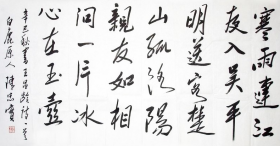 寒雨連江
夜入吳平
明送客楚
山孤洛陽
親友如相
問一片冰
心在玉壺
辛巳秋書王昌齡詩一首
白鹿原人陳忠實